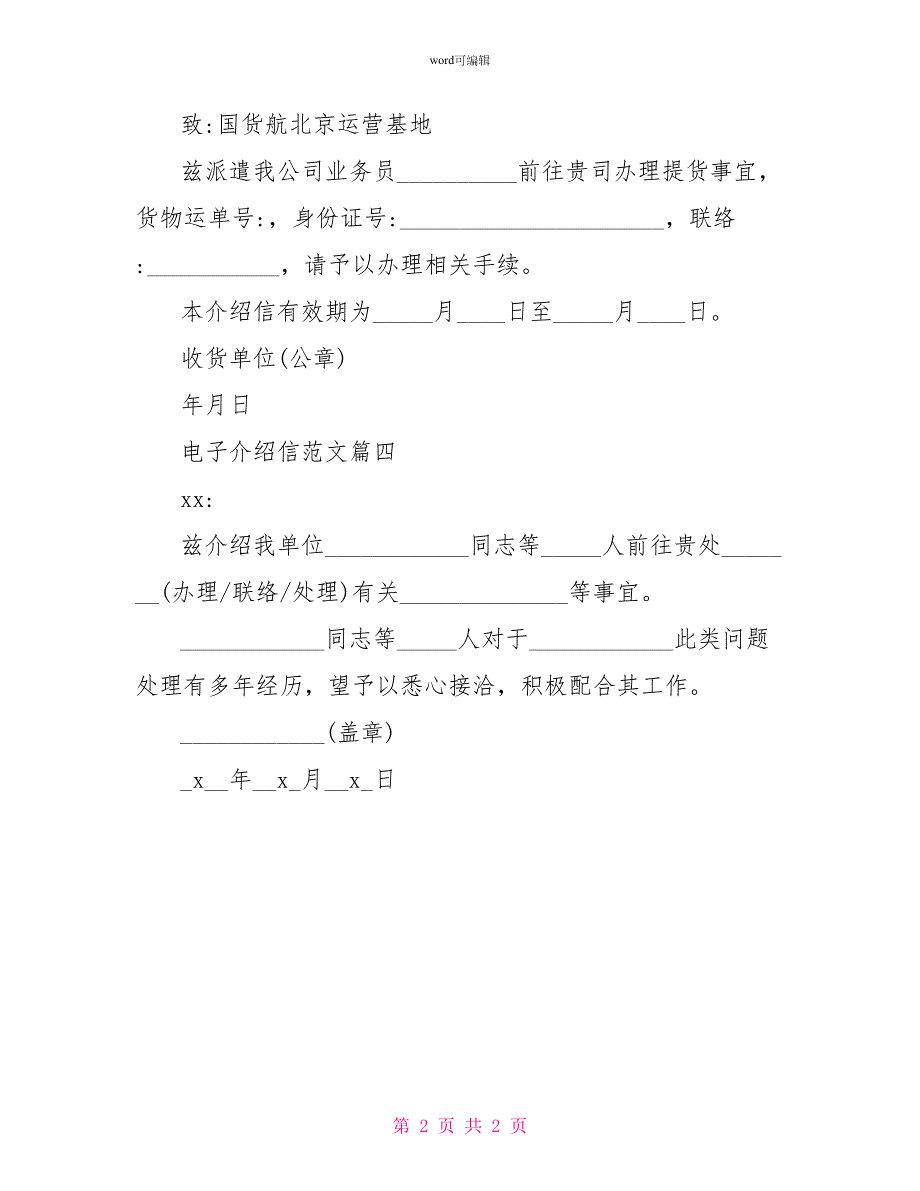 word可编辑
致:国货航北京运营基地
兹派遣我公司业务员__________前往贵司办理提货事宜,
货物运单号:,身份证号:______________________,联络
:___________,请予以办理相关手续。
本介绍信有效期为_____月____日至_____月____日。
收货单位(公章)
年月日
电子介绍信范文篇四
xx:
兹介绍我单位____________同志等_____人前往贵处_____
__(办理/联络/处理)有关______________等事宜。
____________同志等_____人对于____________此类问题
处理有多年经历,望予以悉心接洽,积极配合其工作。
____________(盖章)
_x__年__x_月__x_日
第 2 页 共 2 页